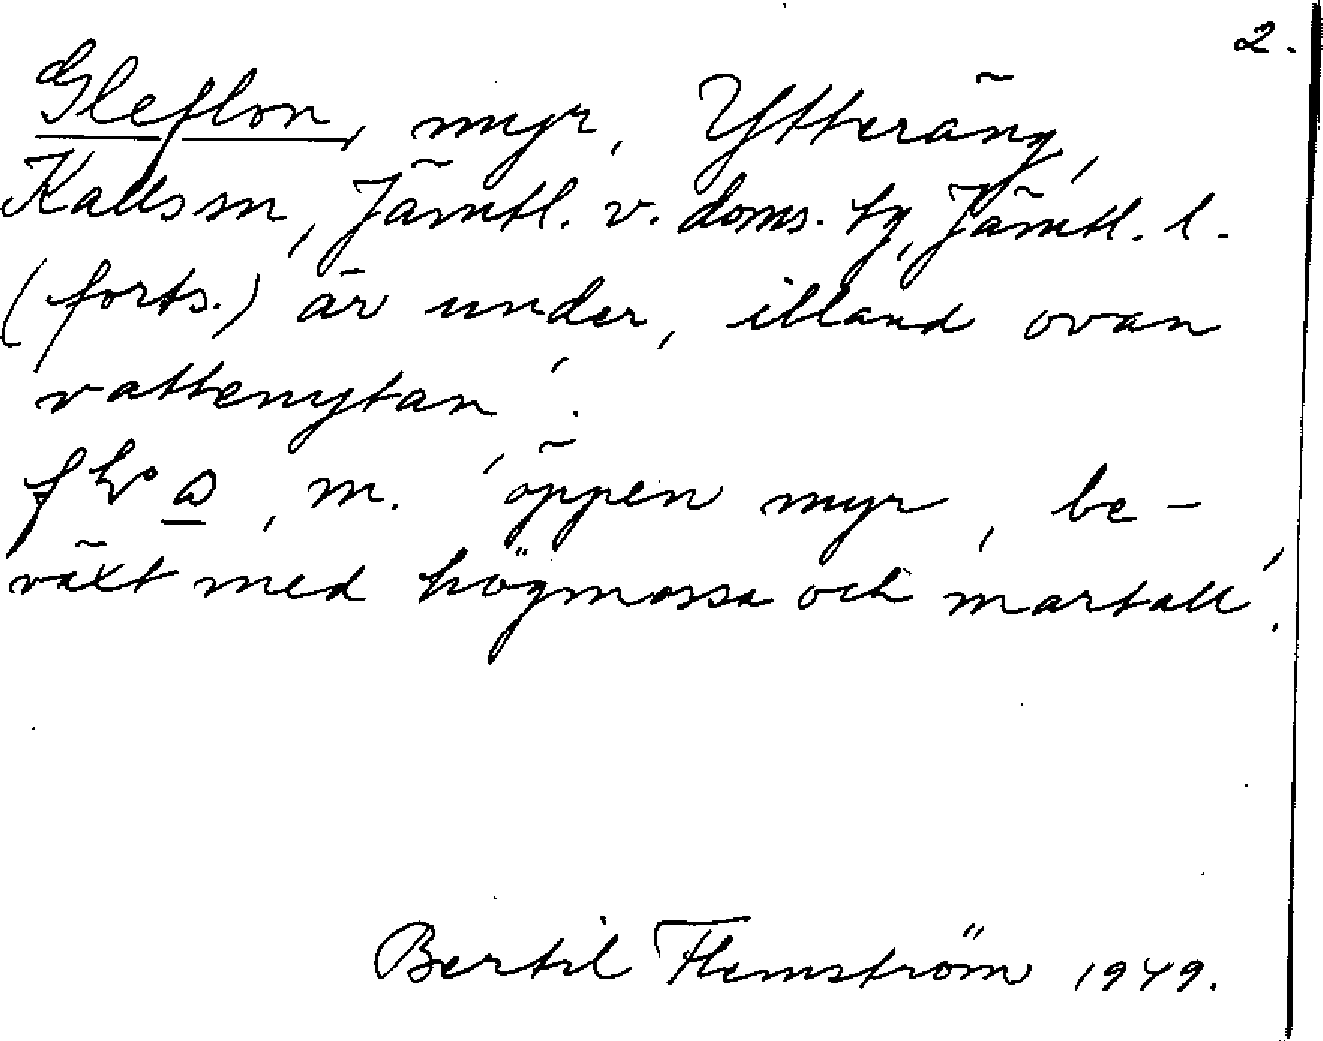 2.
Gleflon, myr, Ytteräng,
Kallssn, Jämtl. v. doms. tg, Jämtl. l.
(forts.) är under, ibland ovan
vattenytan'.
m. 'öppen myr, be-
växt med högmossa och martall'.
Bertil Flemström 1949.